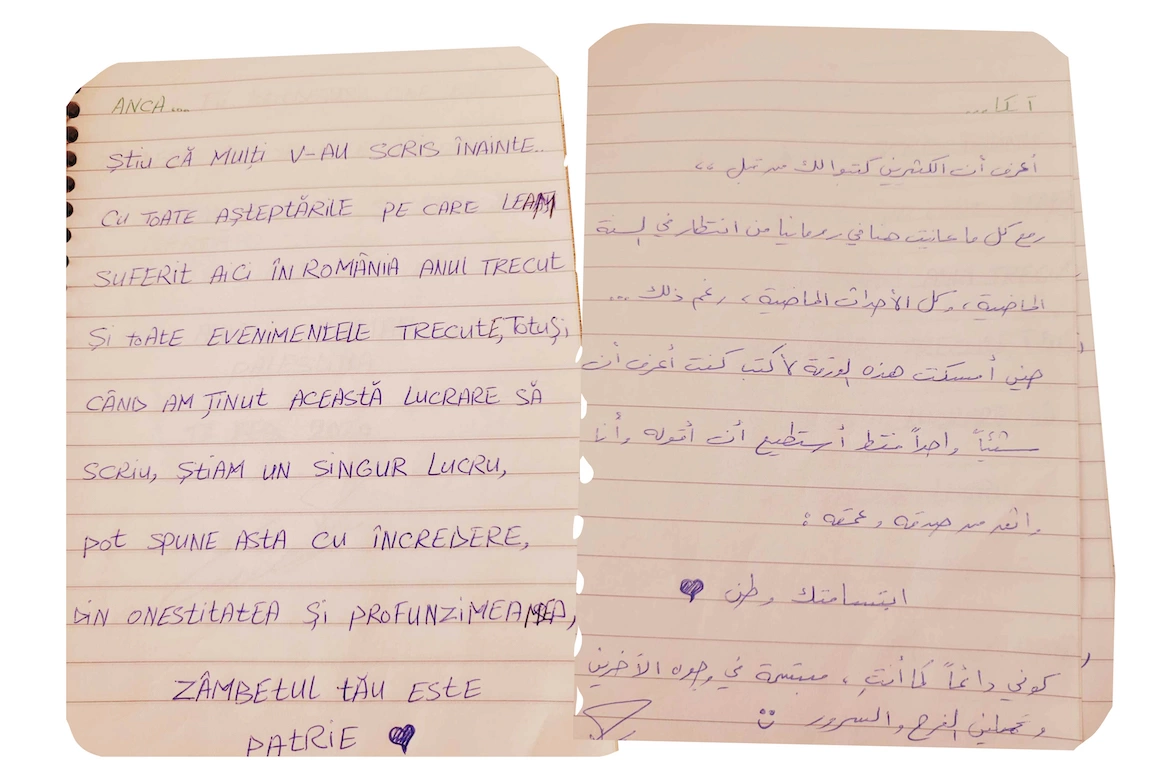 ANCA....
ȘtiU CĂ MULȚI V-AU SCRIS ÎNAINtE..
CU tOATE AȘTEPTĂRILE PE CARE LEAM
SUFERIt AiCi ÎN ROMÂNIA ANUL TRECUt
Și toAtE EVENIMENtELE TRECUtE, TotuȘi,
CÂND AM ȚINUt ACEASTĂ LUCRARE SĂ
SCRiU, ȘtiAM UN SiNGUR LUCRU,
pot SPUNE AStA CU ÎNCREDERE,
DiN ONEStitAtEA Și PROFUNZiMEA,
ZÂMBEtUL tĂU ESTE
PAtRiE
آنكا...
أعرف أن الكثيرين كتبوا لك من قبل ،،
رمع كل ما عانيت هنا في رومانيا من انتظار في السنة
الماضية ، وكل الأحداث الماضية ، رغم ذلك ...
حين أمسكت هذه الورقة لأكتب كنت أعرف أن
شيئاً واحداً فقط أستطيع أن أقوله وأنا
واثق من صدقه وعمقه :
ابتسامتك وطن
كوني دائماً كما أنتِ ، مبتسمة في وجوه الآخرين
وتحملين الفرح والسرور